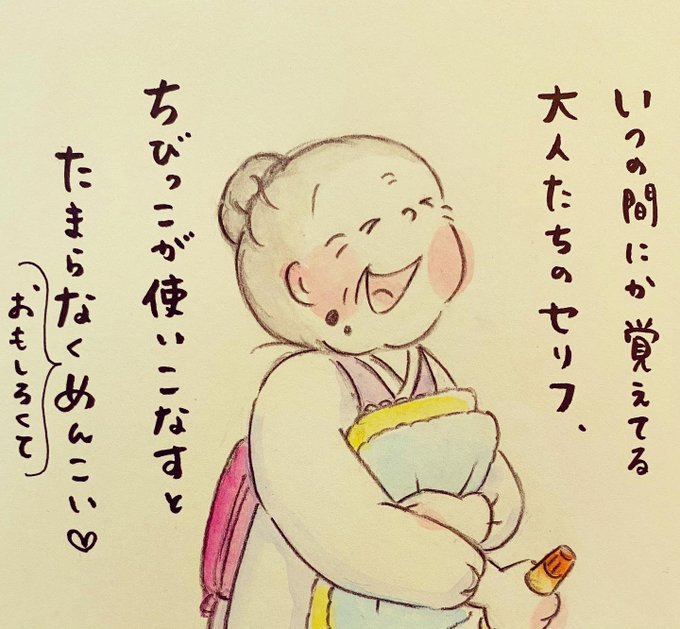 いつの間にか覚えてる
大人たちのセリフ、
ちびっこが使いこなすと
たまらなくめんこい♡
おもしろくて